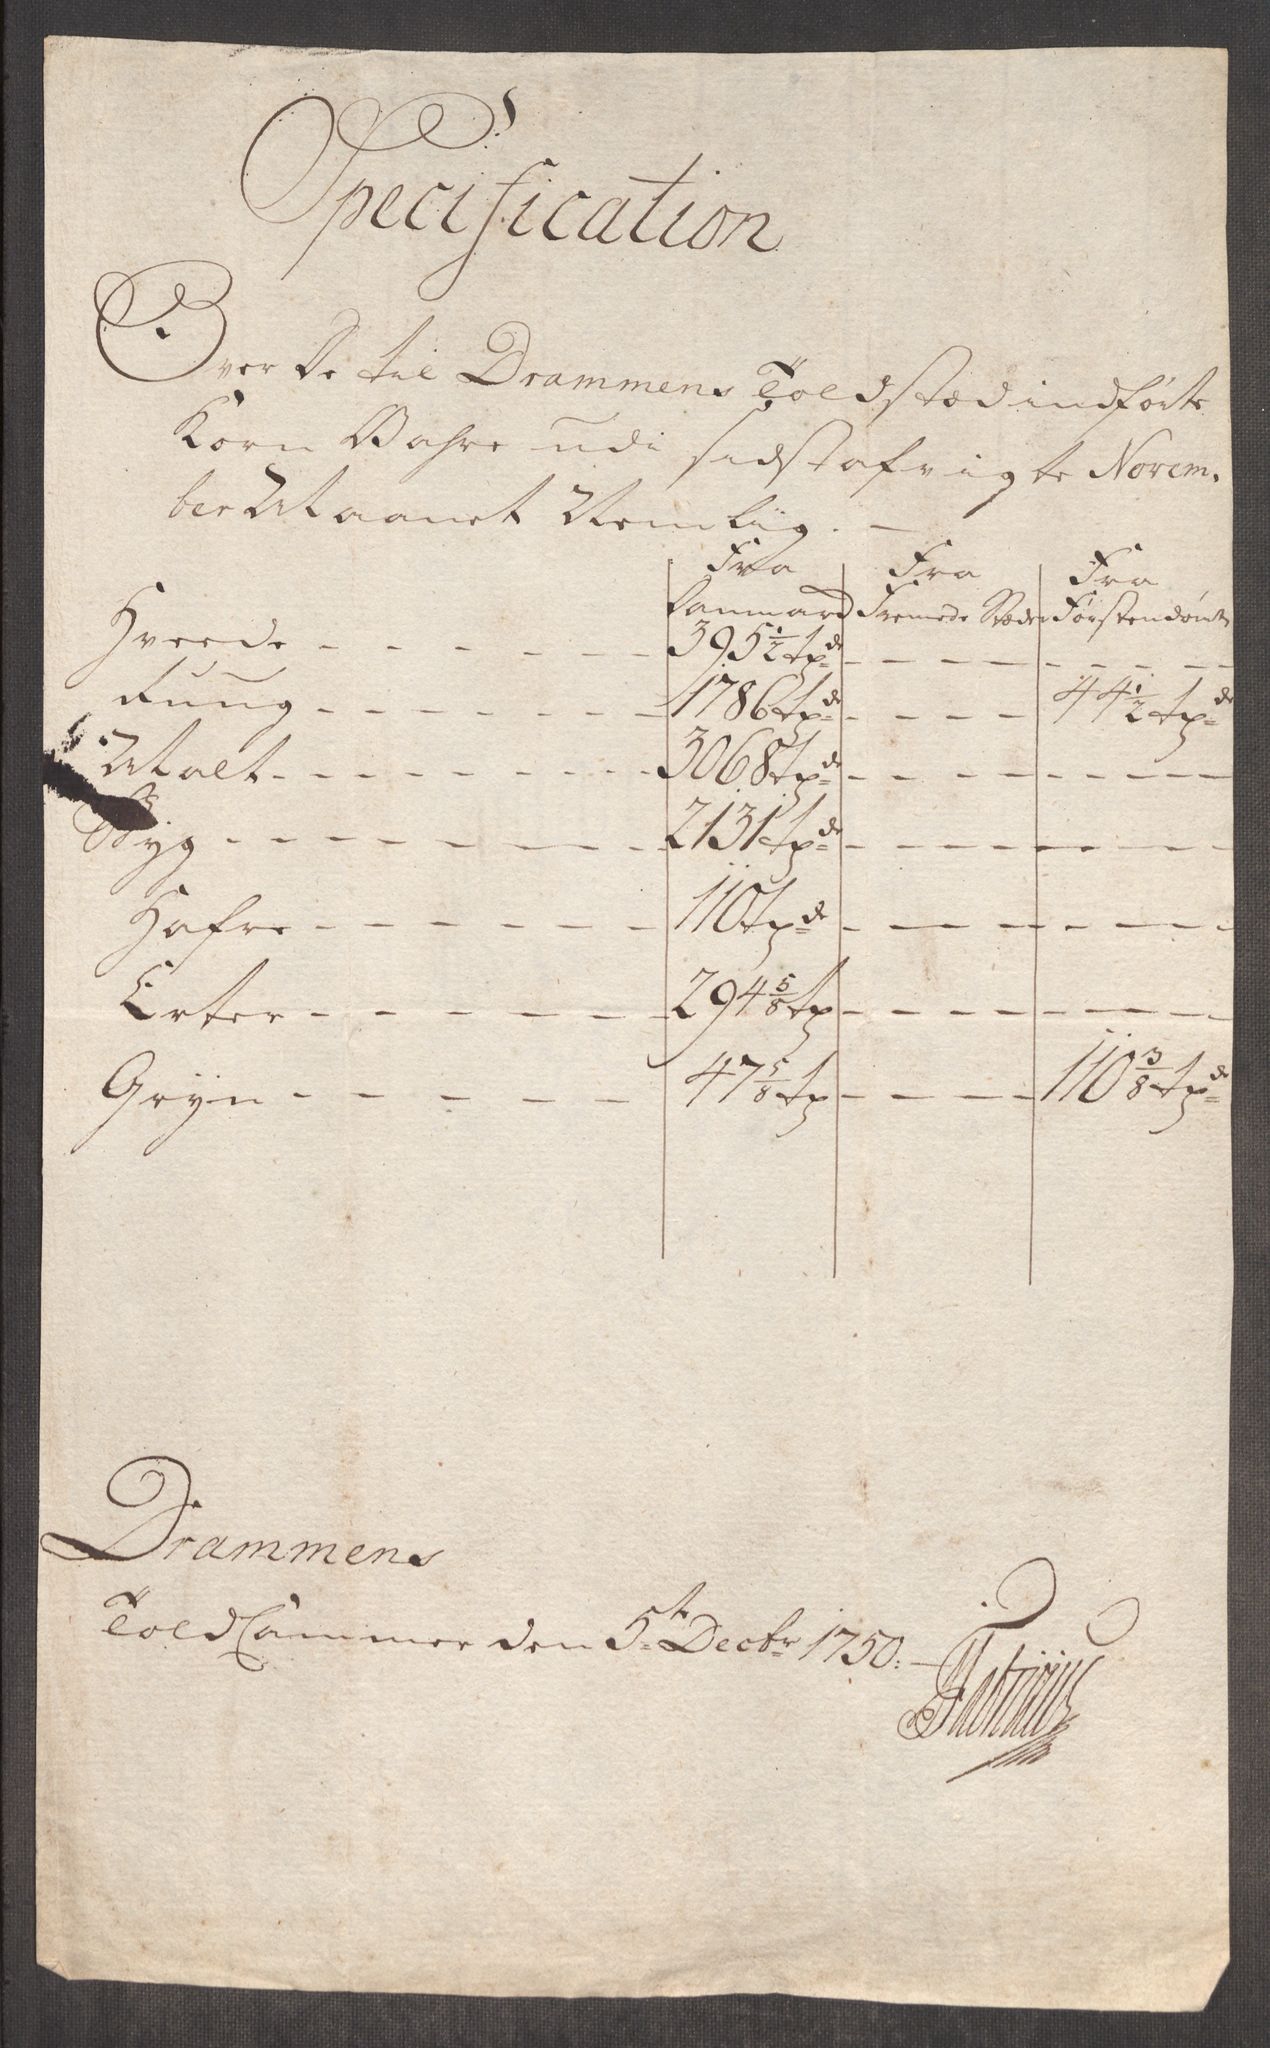 Specification
Over De til Drammens Toldstæd indførte
Korn Vahre udi sidstafvigte Novem-
ber Maanet Nemlig. —
Fra Fra Fra
Danmarck Fremede Stæder Førstendømte
Hveede - - - - - - 395 1/2 tde - - - - - - - -
Ruug - - - - - - 1786 tde - - - - 44 1/2 tde
Malt - - - - - - 3068 tde - - - - - - - -
Byg - - - - - - 2131 tde - - - - - - - -
Hafre - - - - - - 110 tde - - - - - - - -
Erter - - - - - - 294 5/8 t - - - - - - - -
Gryn - - - - - - 47 5/8 t - - - - 110 3/8 tde
Drammens
Told Cammer den 5te Decbr 1750. —
Fabricius